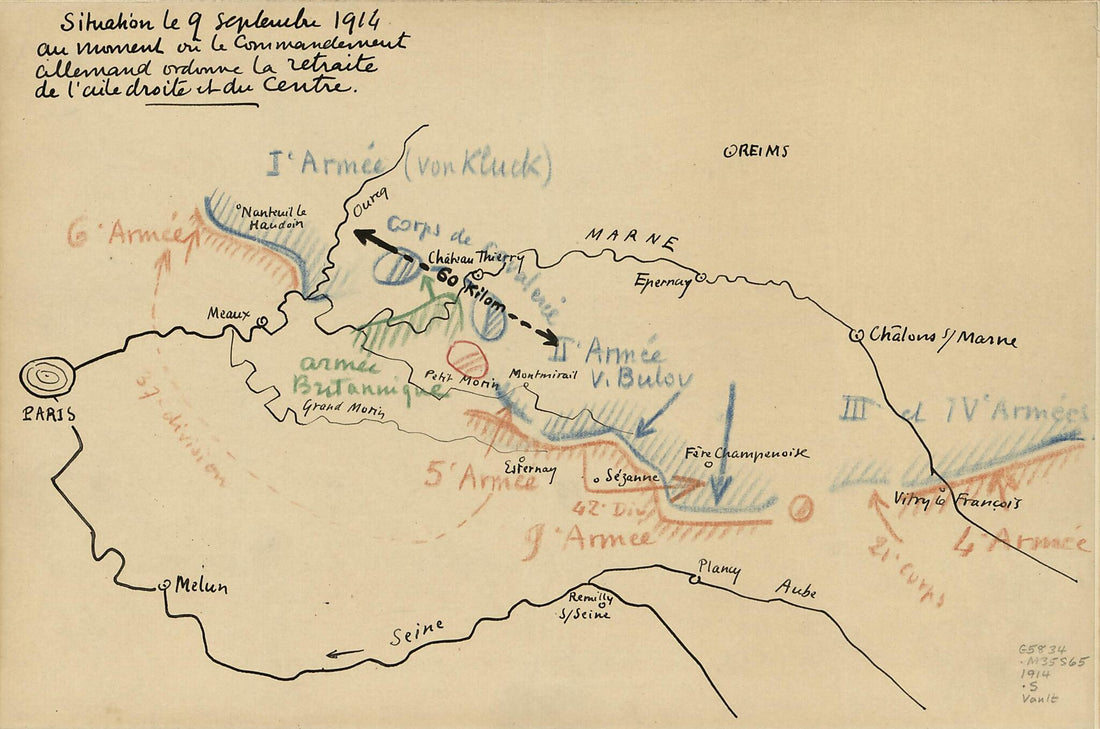 Situation le 9 Septembre 1914
au moment où le Commandement
allemand ordonne la retraite
de l'aile droite et du Centre.
I^e Armée (von Kluck)
REIMS
Ourcq
Nanteuil le
Haudoin
6^e Armée
Corps de Cavalerie
MARNE
Château Thierry
60 Kilom
Epernay
Meaux
Châlons s/Marne
II^e Armée
v. Bulov
armée
Britannique
Petit Morin
Montmirail
PARIS
Grand Morin
III^e et IV^e Armées
37^e division
Fère Champenoise
Esternay
Sézanne
5^e Armée
Vitry le François
42^e Div.
9^e Armée
4^e Armée
21^e corps
Plancy
Aube
Melun
Remilly
s/Seine
Seine
G5834
.M35S65
1914
.S
Vault